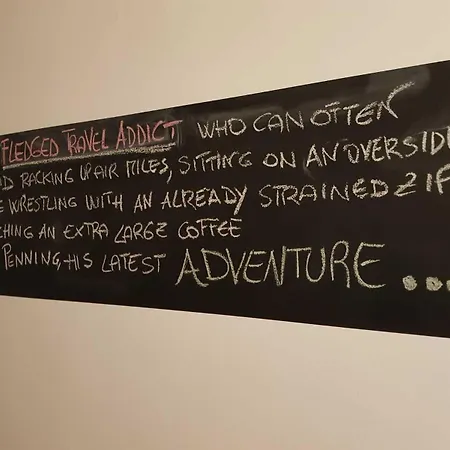 FLEDGED TRAVEL ADDICT WHO CAN OFTEN
RACKING UP AIR MILES, SITTING ON AN OVERSID
WRESTLING WITH AN ALREADY STRAINED ZIP
CHING AN EXTRA LARGE COFFEE
PENNING HIS LATEST ADVENTURE ...